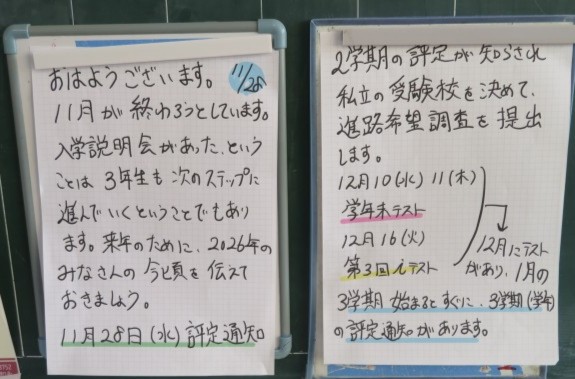 おはようございます。 11/28
11月が終わろうとしています。
入学説明会があった、という
ことは3年生も次のステップに
進んでいくということでもあり
ます。来年のために、2026年の
みなさんの今頃を伝えて
おきましょう。
11月28日(水)評定通知
2学期の評定が知らされ
私立の受験校を決めて、
進路希望調査を提出
します。
12月10(水)11(木)
学年末テスト
12月16(火)
第3回iテスト
12月にテスト
があり、1月の
3学期始まるとすぐに、3学期(学年)
の評定通知があります。